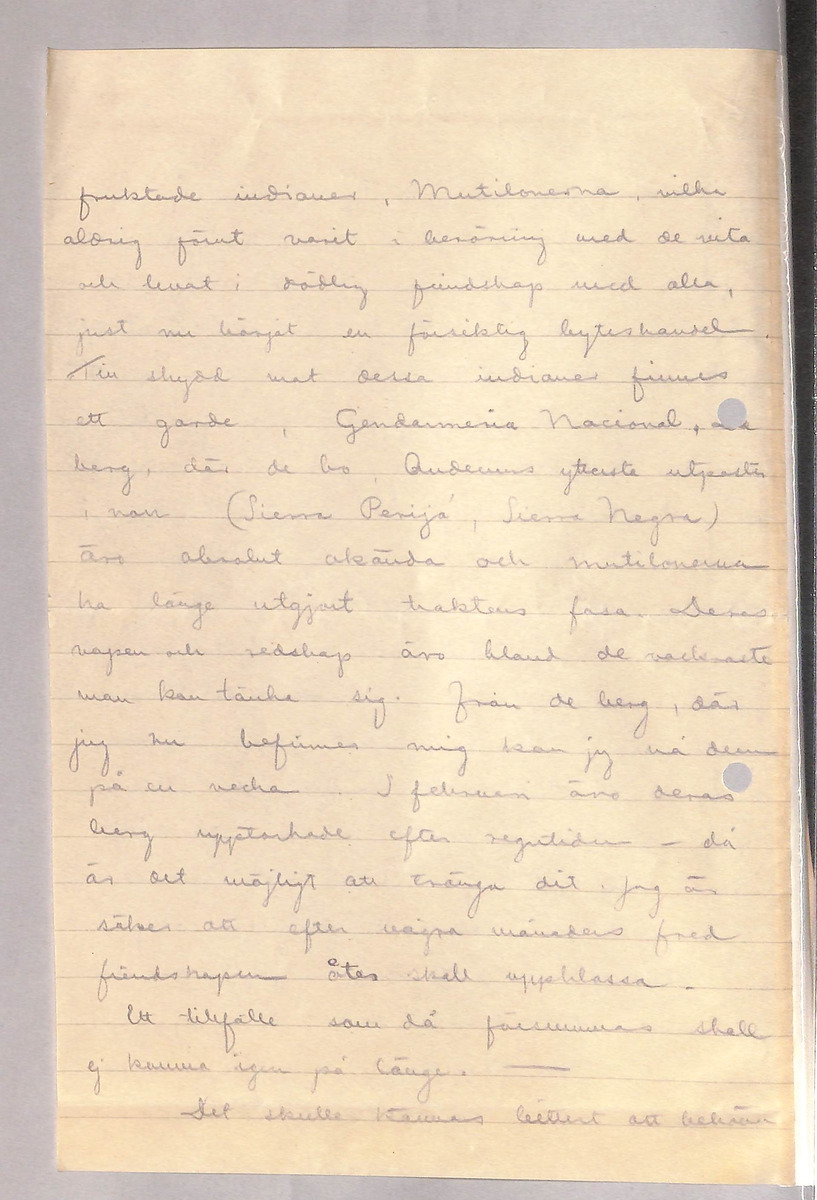 fruktade indianer, Mutilonerna, vilka
aldrig förut varit i beröring med de vita
och levat i dödlig fiendskap med alla,
just nu börjat en försiktig byteshandel.
Till skydd mot dessa indianer finnes
ett garde, Gendarmeria Nacional, De
berg, där de bo, Andernas ytterste utposter
i norr (Sierra Perijá, Sierra Negra)
äro absolut okända och mutilonerna
ha länge utgjort traktens fasa. Deras
vapen och redskap äro bland de vackraste
man kan tänka sig. Från de berg, där
jag nu befinner mig kan jag nå dem
på en vecka. I februari äro deras
berg upptorkade efter regntiden – då
är det möjligt att tränga dit. Jag är
säker att efter några månaders fred
fiendskapen åter skall uppblossa.
Ett tillfälle som då försummas skall
ej komma igen på länge. —
Det skulle kännas bittert att behöva